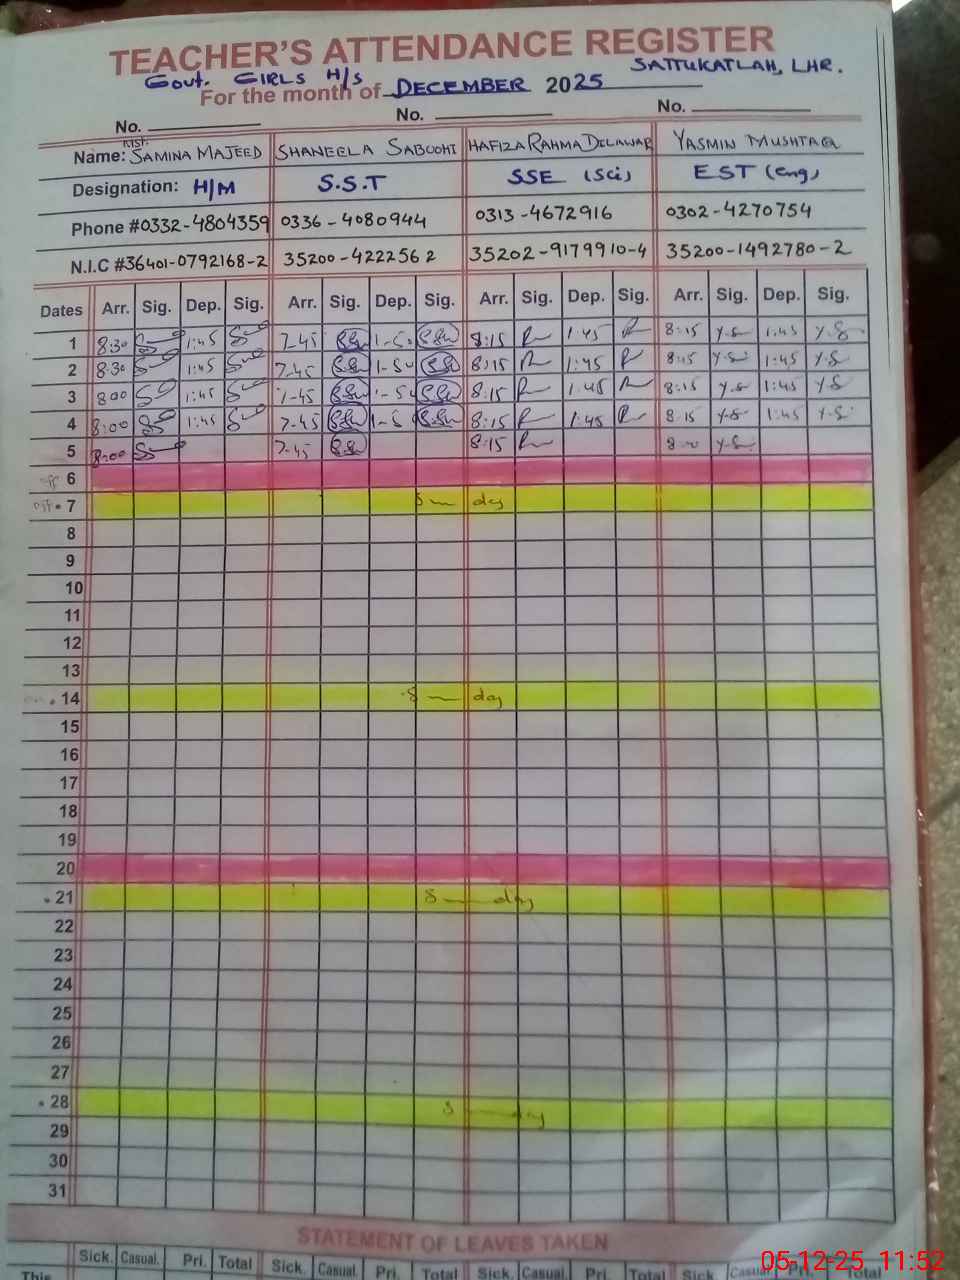 TEACHER'S ATTENDANCE REGISTER
Govt. GIRLS H/S SATTUKATLAH, LHR.
For the month of DECEMBER 2025
No. No. No.
Name: Mst. SAMINA MAJEED SHANEELA SABOOHI HAFIZA RAHMA DELAWAR YASMIN MUSHTAQ
Designation: H/M S.S.T SSE (Sci) EST (Eng)
Phone #0332-4804359 0336-4080944 0313-4672916 0302-4270754
N.I.C #36401-0792168-2 35200-4222562 35202-9179910-4 35200-1492780-2
Dates Arr. Sig. Dep. Sig. Arr. Sig. Dep. Sig. Arr. Sig. Dep. Sig. Arr. Sig. Dep. Sig.
1 8:30 1:45 7-45 1-50 8:15 1:45 8:15 Y.S 1:45 Y.S
2 8:30 1:45 7-45 1-50 8:15 1:45 8:15 Y.S 1:45 Y.S
3 800 1:45 7-45 1-5 8:15 1:45 8:15 Y.S 1:45 Y.S
4 8:00 1:45 7-45 1-5 8:15 1:45 8:15 Y.S 1:45 Y.S
5 8:00 7-45 8:15 Y.S
6
7 Sunday
8
9
10
11
12
13
14 Sunday
15
16
17
18
19
20
21 Sunday
22
23
24
25
26
27
28 Sunday
29
30
31
STATEMENT OF LEAVES TAKEN
Sick. Casual. Pri. Total Sick. Casual. Pri. Total Sick. Casual. Pri. Total Sick. Casual. Pri. Total
This
05-12-25 11:52